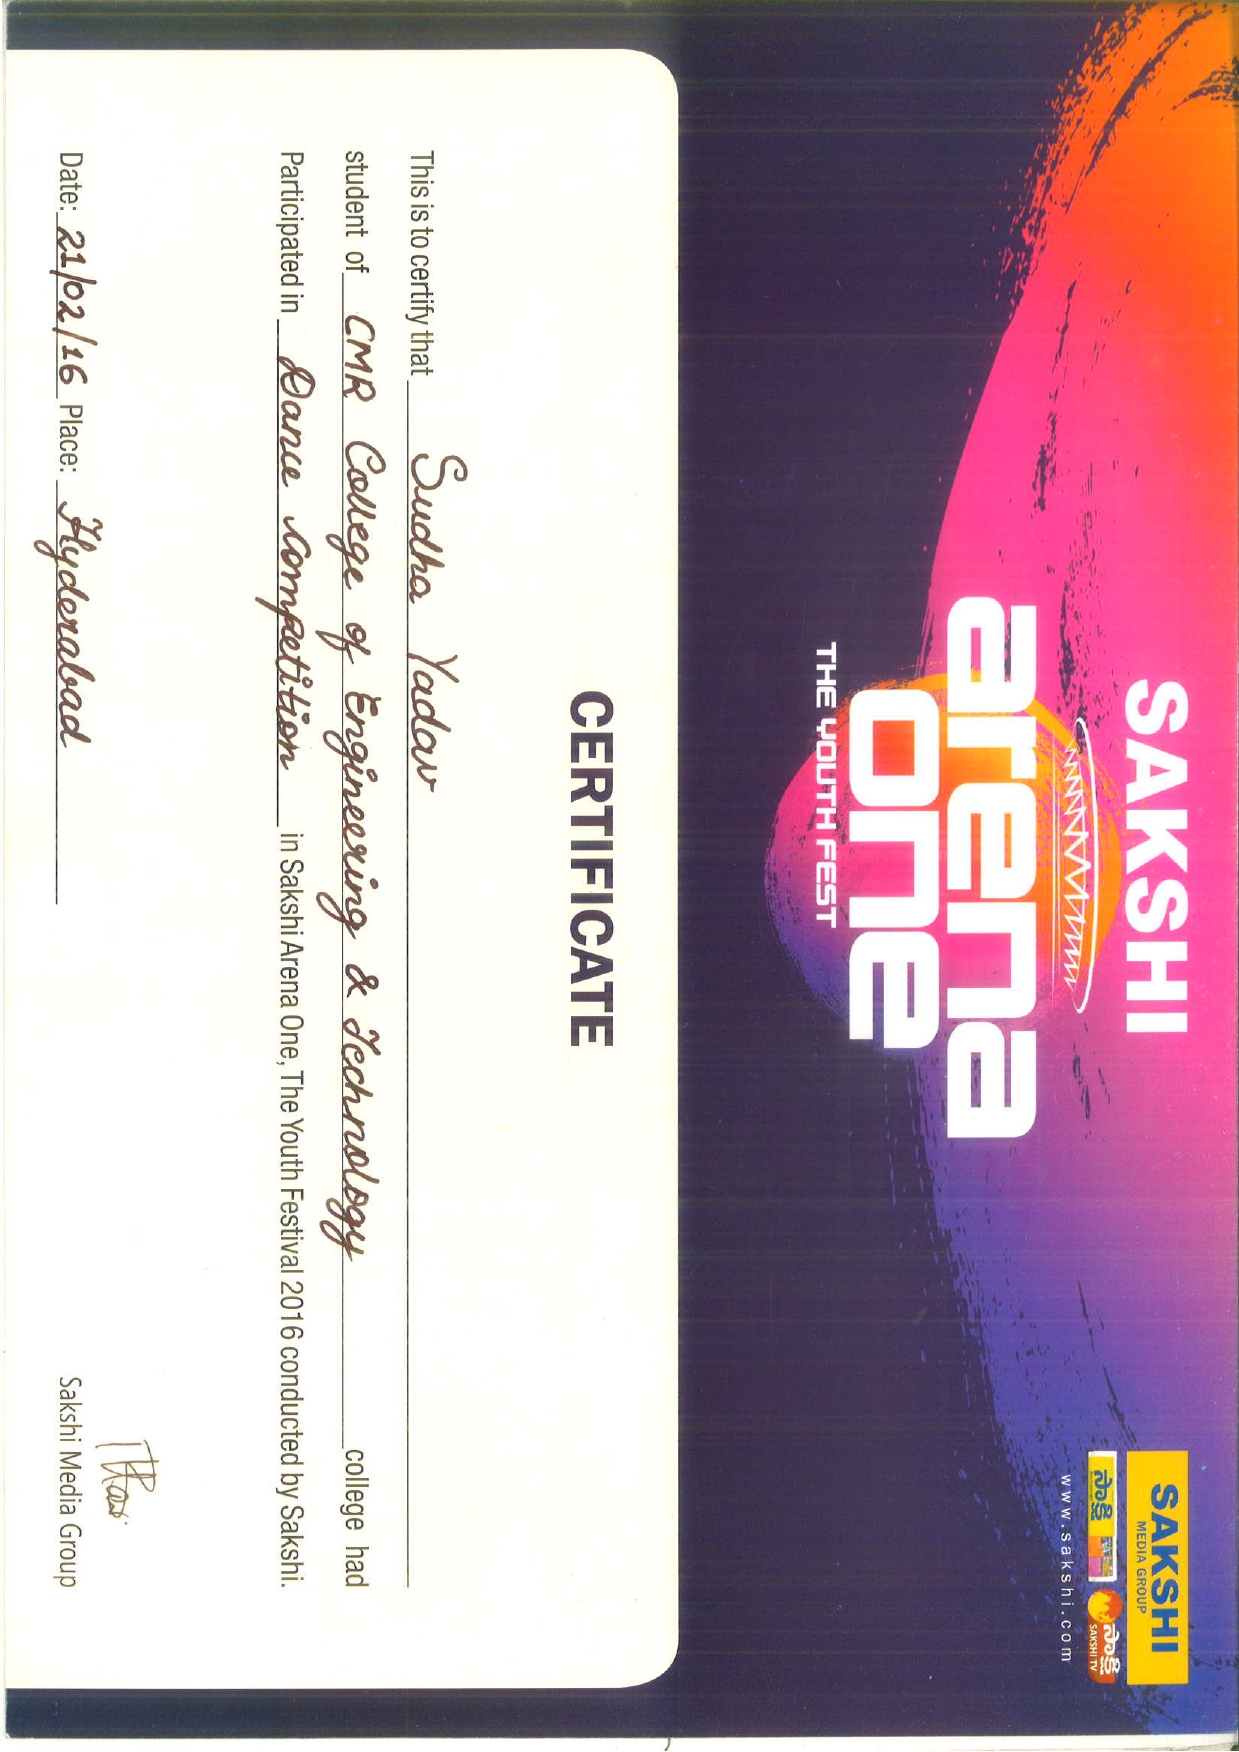 SAKSHI
arena
one
THE YOUTH FEST
SAKSHI
MEDIA GROUP
సాక్షి
సాక్షి
SAKSHI TV
www.sakshi.com
CERTIFICATE
This is to certify that Sudha Yadav
student of CMR College of Engineering & Technology college had
Participated in Dance Competition in Sakshi Arena One, The Youth Festival 2016 conducted by Sakshi.
Date: 21/02/16 Place: Hyderabad
Sakshi Media Group